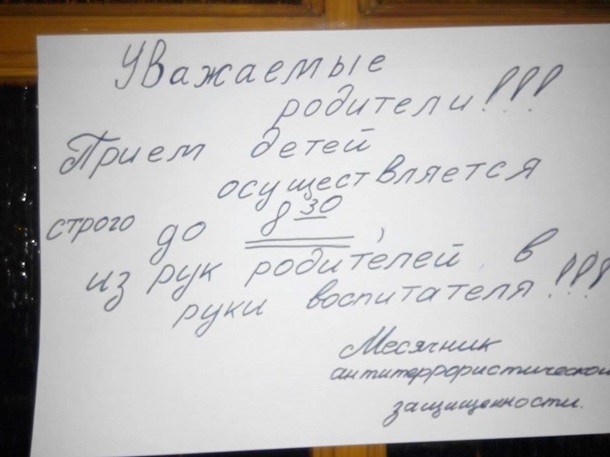 Уважаемые
родители!!!
Прием детей
осуществляется
строго до 8 30,
из рук родителей в
руки воспитателя!!!
Месячник
антитеррористической
защищенности.